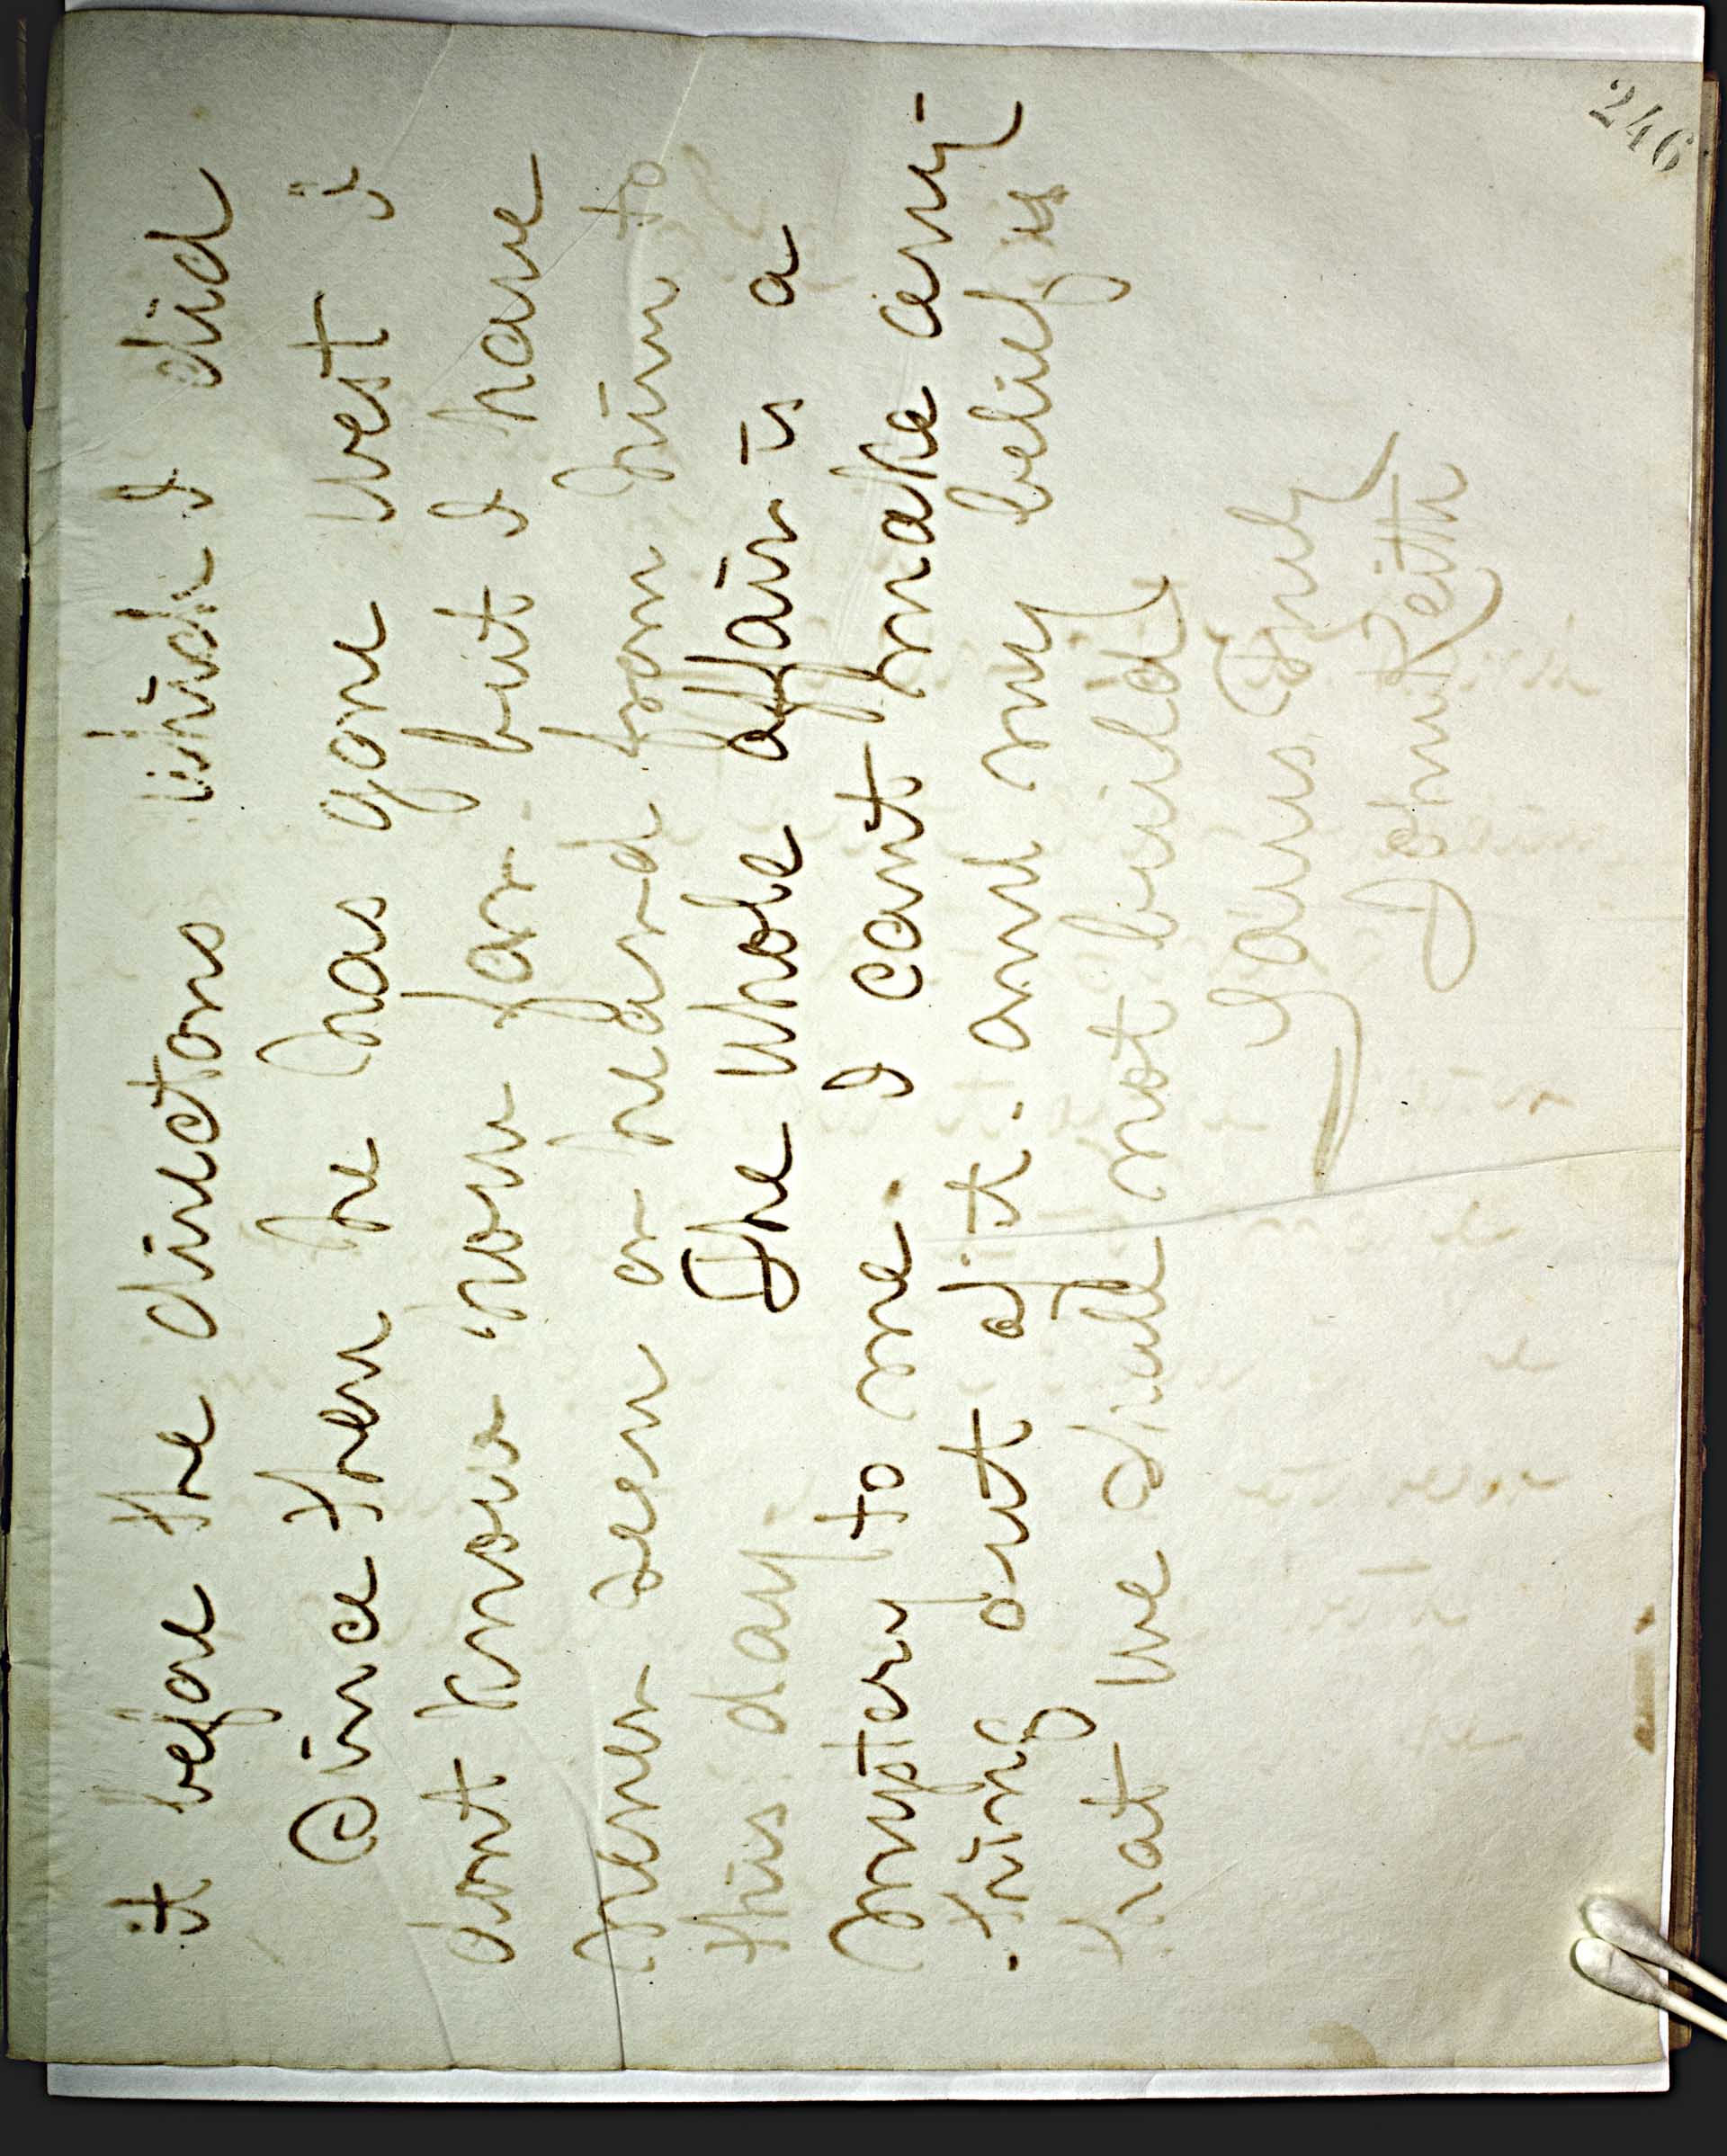 246
it before the directors which I did
Since then he has gone west I
dont know how far but I have
never seen or heard from him to
this day The whole affair is a
mystery to me. I cant make any
thing out of it. and my belief is
that we shall not build
Yours Truly
John Keith